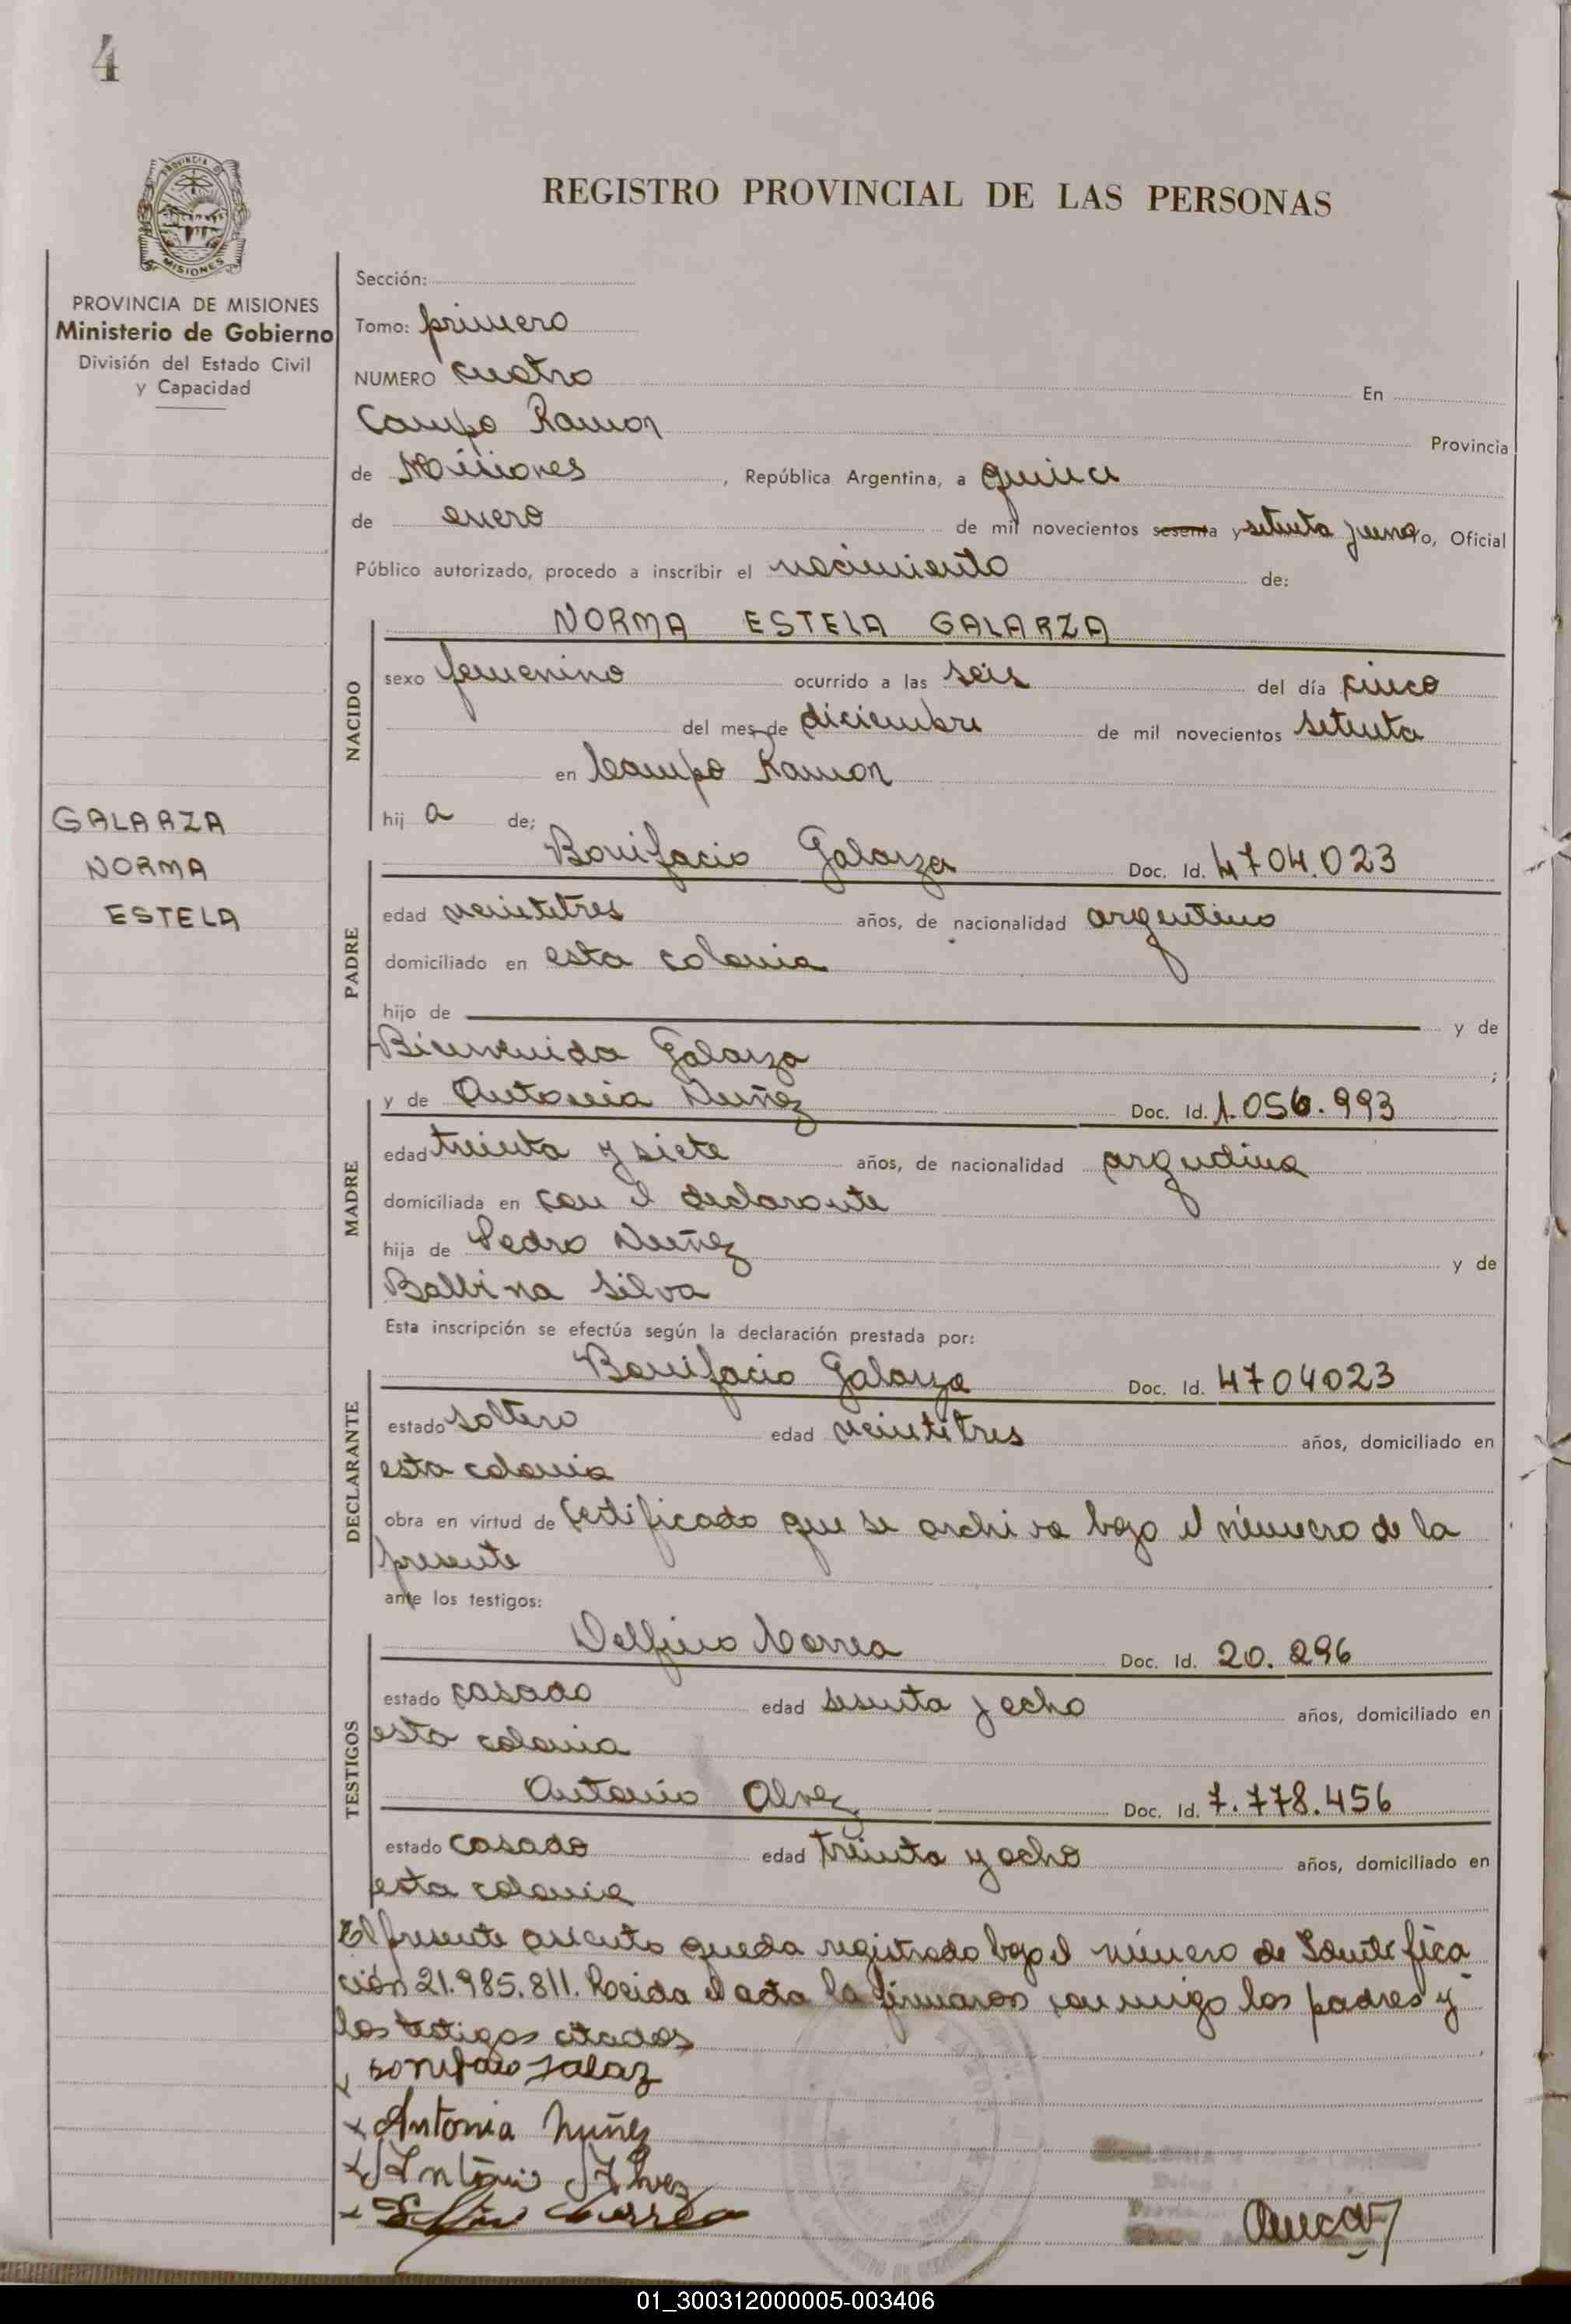 4
PROVINCIA
MISIONES
REGISTRO PROVINCIAL DE LAS PERSONAS
PROVINCIA DE MISIONES
Ministerio de Gobierno
División del Estado Civil
y Capacidad
GALARZA
NORMA
ESTELA
Sección:
Tomo: primero
NUMERO cuatro En
Campo Ramon Provincia
de Misiones, República Argentina, a quince
de enero de mil novecientos sesenta y setenta y uno Yo, Oficial
Público autorizado, procedo a inscribir el nacimiento de:
NORMA ESTELA GALARZA
NACIDO
sexo femenino ocurrido a las seis del día cinco
del mes de diciembre de mil novecientos setenta
en Campo Ramon
hij a de;
Bonifacio Galarza Doc. Id. 4704.023
PADRE
edad veintitres años, de nacionalidad argentino
domiciliado en esta colonia
hijo de y de
Bienvenida Galarza ;
y de Antonia Nuñez Doc. Id. 1.056.993
MADRE
edad treinta y siete años, de nacionalidad argentina
domiciliada en con el declarante
hija de Pedro Nuñez y de
Balbina Silva
Esta inscripción se efectúa según la declaración prestada por:
Bonifacio Galarza Doc. Id. 4704023
DECLARANTE
estado soltero edad veintitres años, domiciliado en
esta colonia
obra en virtud de Certificado que se archiva bajo el número de la
presente
ante los testigos:
Delfino Correa Doc. Id. 20.296
TESTIGOS
estado casado edad sesenta y ocho años, domiciliado en
esta colonia
Antonio Alvez Doc. Id. 7.778.456
estado casado edad treinta y ocho años, domiciliado en
esta colonia
El presente asiento queda registrado bajo el número de Identifica
ción 21.985.811. Leida el acta la firmaron conmigo los padres y
los testigos citados
x Antonia Nuñez
x Antonio Alvez
x Correa
01_300312000005-003406